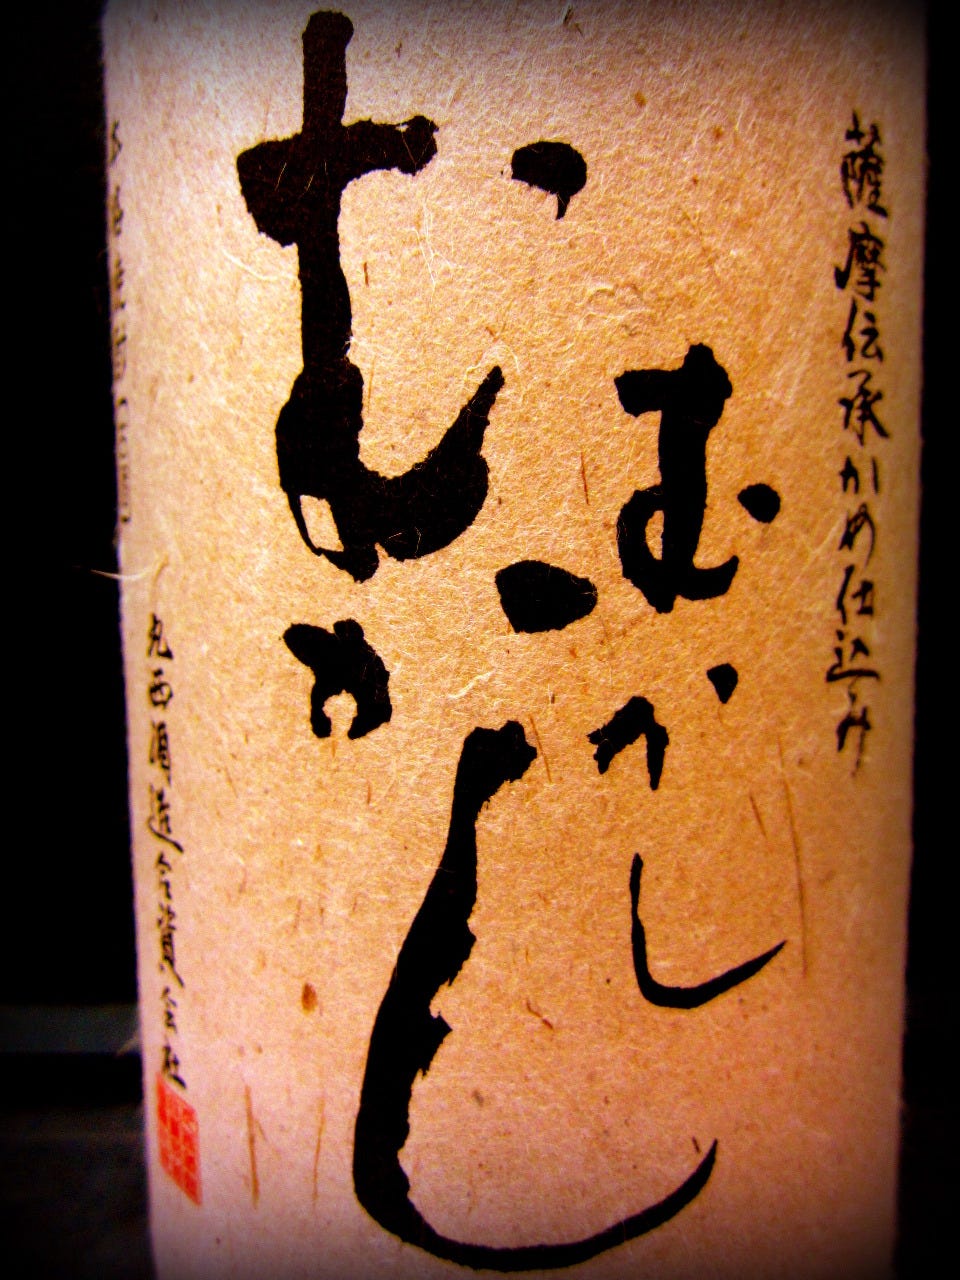 薩摩伝承かめ仕込み
むかし
むかし
丸西酒造合資会社